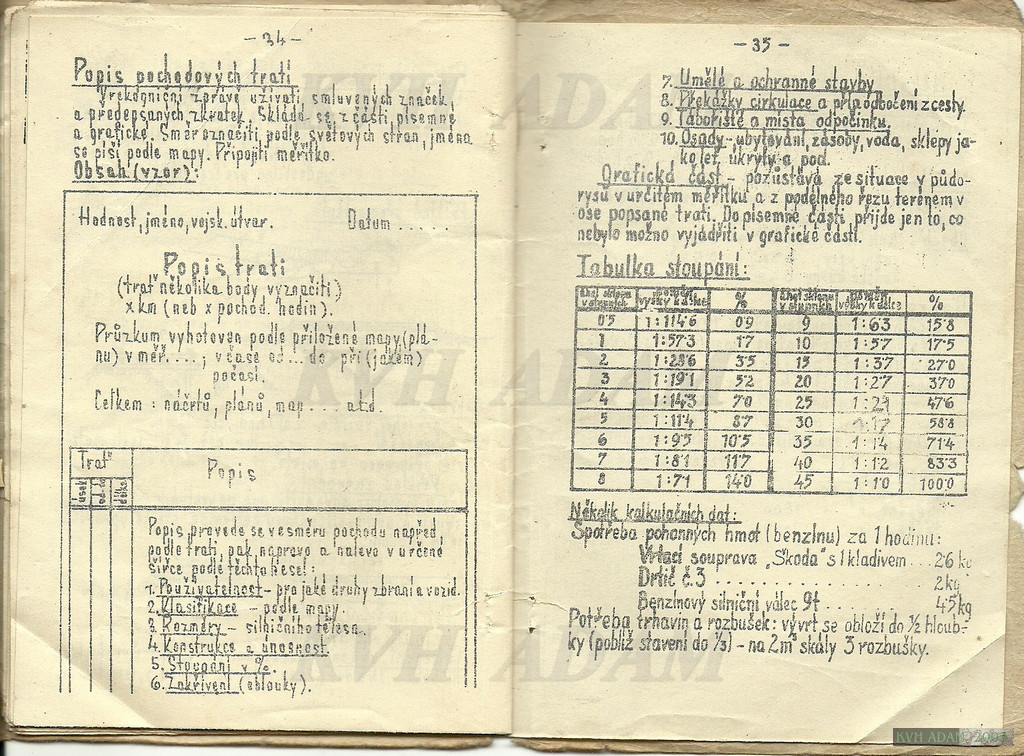 - 34 -
Popis pochodových tratí
V rekogniční zprávě užívati smluvených značek
a předepsaných zkratek. Skládá se z části písemné
a grafické. Směr označiti podle světových stran, jména
se píší podle mapy. Připojiti měřítko.
Obsah (vzor):
Hodnost, jméno, vojsk. útvar. Datum ......
Popis trati
(trať několika body vyznačiti)
x km (neb x pochod. hodin).
Průzkum vyhotoven podle přiložené mapy (plá-
nu) v měř. ....; v čase od ... do při (jakém)
počasí.
Celkem: náčrtů, plánů, map .... atd.
Trať Popis
úsek délka
Popis provede se ve směru pochodu napřed
podle trati, pak napravo a nalevo v určené
šířce podle těchto hesel:
1. Použivatelnost - pro jaké druhy zbraní a vozid.
2. Klasifikace - podle mapy.
3. Rozměry - silničního tělesa.
4. Konstrukce a únosnost.
5. Stoupání v %.
6. Zakřivení (oblouky).
- 35 -
7. Umělé a ochranné stavby
8. Překážky cirkulace a příp. odbočení z cesty.
9. Tábořiště a místa odpočinku.
10. Osady - ubytování, zásoby, voda, sklepy ja-
ko let. úkryty a pod.
Grafická část - pozůstává ze situace v půdo-
rysu v určitém měřítku a z podélného řezu terénem v
ose popsané trati. Do písemné části přijde jen to, co
nebylo možno vyjádřiti v grafické části.
Tabulka stoupání:
úhel sklonu v stupních poměr výšky k délce % úhel sklonu v stupních poměr výšky k délce %
0'5 1:114'6 0'9 9 1:6'3 15'8
1 1:57'3 1'7 10 1:5'7 17'5
2 1:28'6 3'5 15 1:3'7 27'0
3 1:19'1 5'2 20 1:2'7 37'0
4 1:14'3 7'0 25 1:2'1 47'6
5 1:11'4 8'7 30 1:1'7 58'8
6 1:9'5 10'5 35 1:1'4 71'4
7 1:8'1 11'7 40 1:1'2 83'3
8 1:7'1 14'0 45 1:1'0 100'0
Několik kalkulačních dat:
Spotřeba pohonných hmot (benzinu) za 1 hodinu:
Vrtací souprava „Škoda" s 1 kladivem ... 2'6 kg
Drtič č. 3 .............. 2 kg
Benzinový silniční válec 9t ........ 4'5 kg
Potřeba trhavin a rozbušek: vývrt se obloží do ½ hloub-
ky (poblíž stavení do ⅓) - na 2 m³ skály 3 rozbušky.
KVH ADAM
KVH ADAM
KVH ADAM